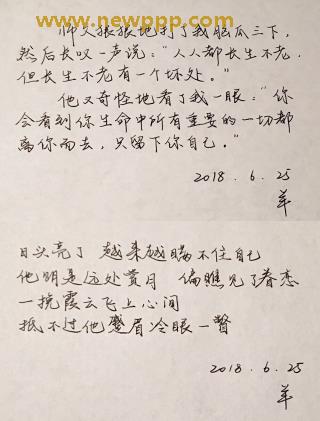 www.newppp.com
师父狠狠地打了我脑瓜三下,
然后长叹一声说:“人人都长生不老,
但长生不老有一个坏处。”
他又奇怪地看了我一眼:“你
会看到你生命中所有重要的一切都
离你而去,只留下你自己。”
2018.6.25
羊
日头亮了 越来越瞒不住自己
他明是远处赏月 偏瞧见了眷恋
一挽霞云飞上心间
抵不过他蹙眉冷眼一瞥
2018.6.25
羊